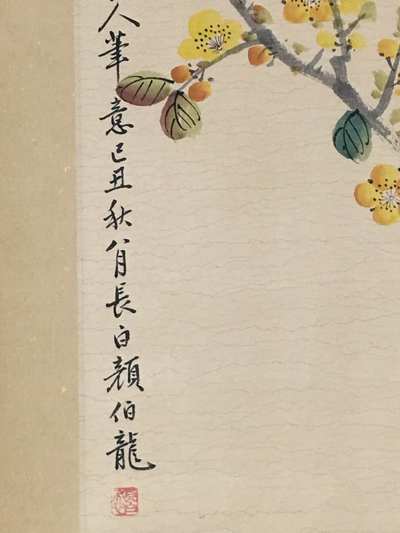 人筆意己丑秋八月長白顏伯龍